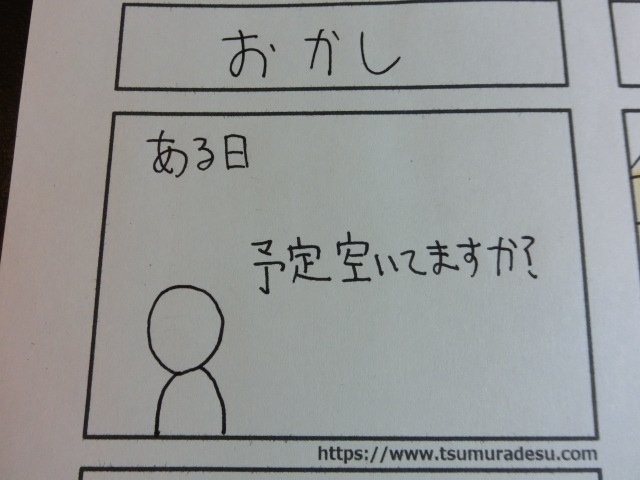 おかし
ある日
予定空いてますか?
https://www.tsumuradesu.com